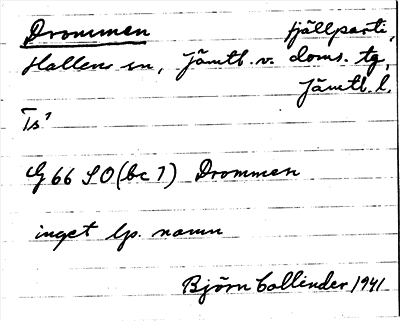 Drommen fjällparti,
Hallens sn, Jämtl. v. doms. tg,
Jämtl. l.
Ts?
G 66 SO (bc 7) Drommen
inget lp. namn
Björn Collinder 1941